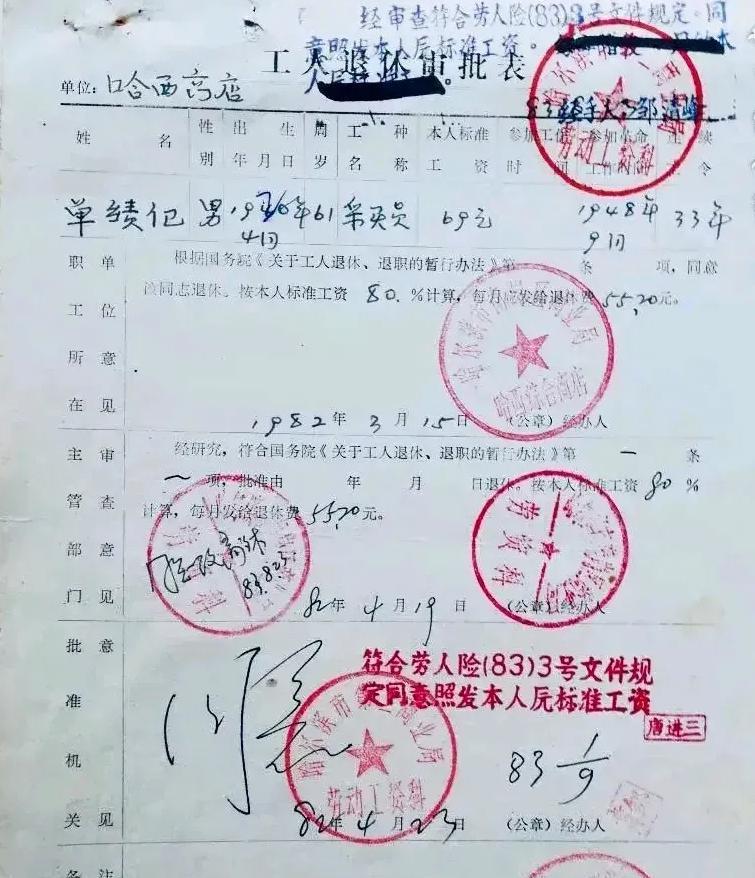 经审查符合劳人险(83)3号文件规定。同
意照发本人原标准工资。
工人退休审批表
单位:哈西商店
83 经手人:邹清峰
姓名 性别 出生年月日 周岁 工种名称 本人标准工资 参加工作时间 参加革命工作时间 连续工令
单绩仁 男 19 年 61 采买员 69元 1948年 33年
9月
职工所在单位意见
根据国务院《关于工人退休、退职的暂行办法》第 条 项,同意
该同志退休。按本人标准工资 80.%计算,每月应发给退休费 55.20元。
哈西综合商店
1982年3月15日 (公章)经办人
主管部门审查意见
经研究,符合国务院《关于工人退休、退职的暂行办法》第 一 条
一 项,批准由 年 月 日退休,按本人标准工资 80 %
计算,每月发给退休费 55.20元。
劳资科
83.8.23
劳资科
82年4月19日 (公章)经办人
批准机关意见
符合劳人险(83)3号文件规
定同意照发本人原标准工资
唐进三
哈尔滨市第二商业局
劳动工资科
83 1/9
82年4月23日 (公章)经办人
备注